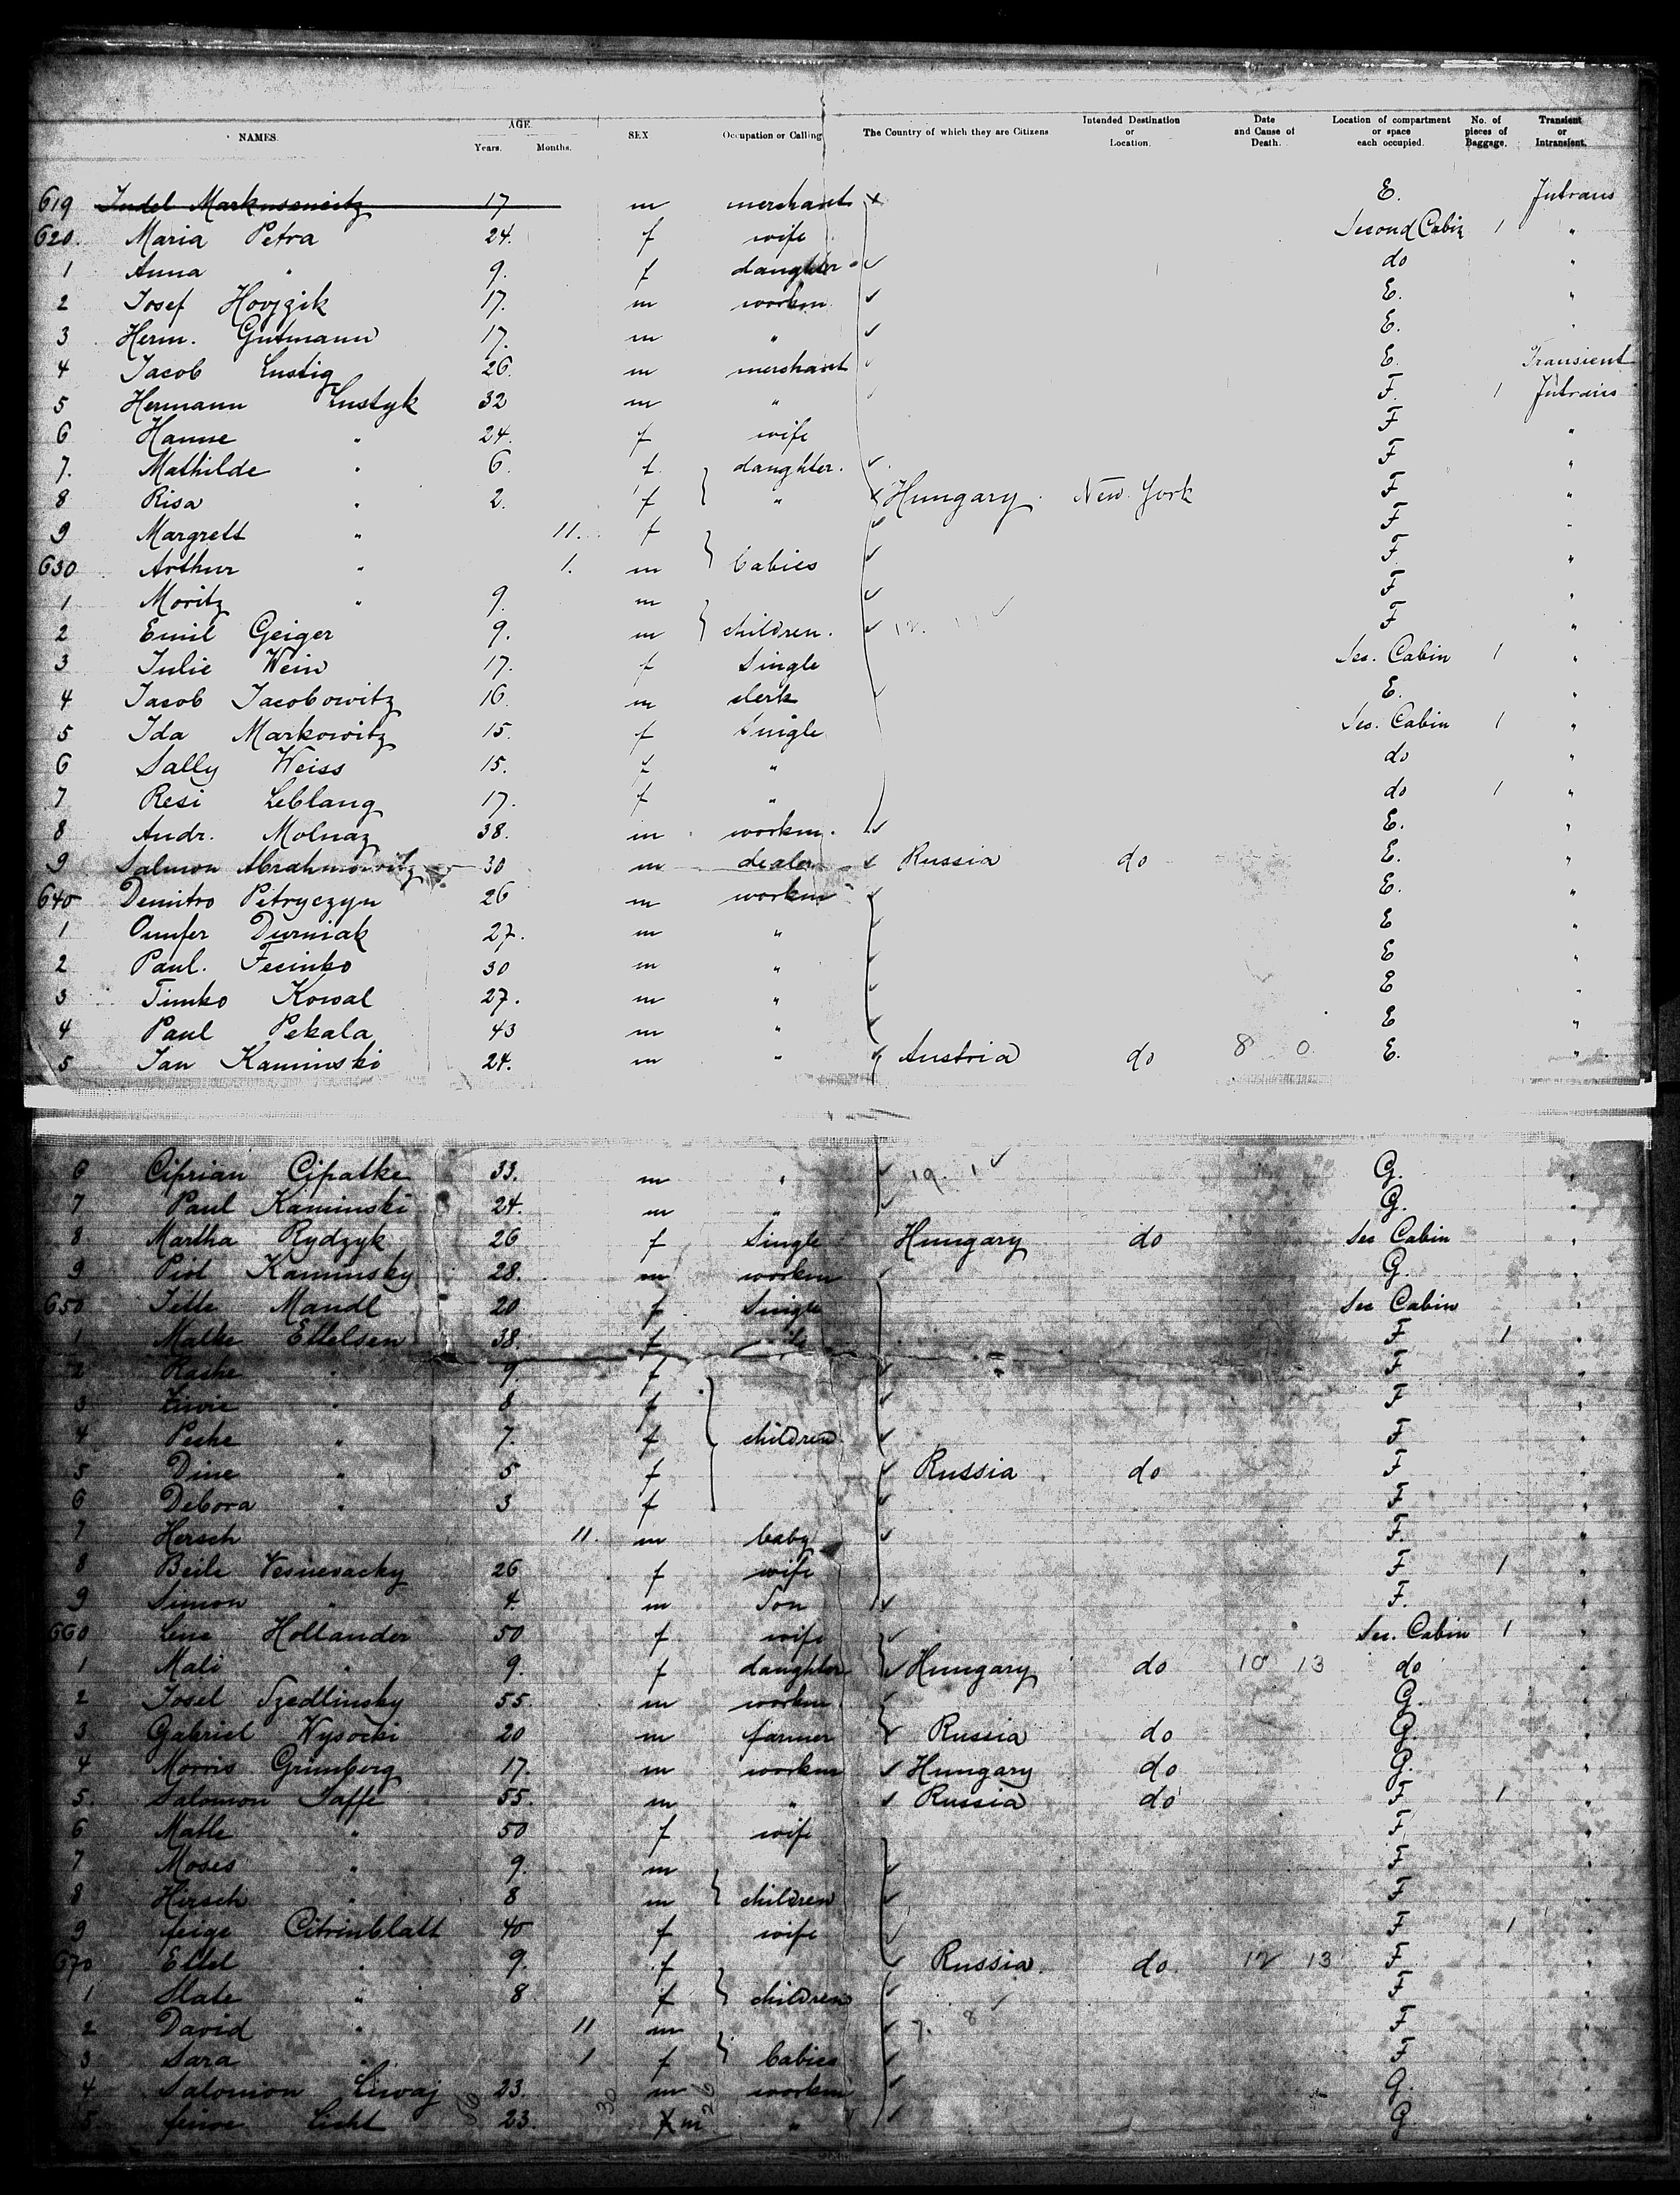 NAMES. AGE. Years. Months. SEX Occupation or Calling The Country of which they are Citizens Intended Destination or Location. Date and Cause of Death. Location of compartment or space each occupied. No. of pieces of Baggage. Transient or Intransient.
619 17 m merchant E. Intrans
620. Maria Petra 24. f wife Second Cabin 1 "
1 Anna " 9. f daughter do "
2 Josef 17. m workm E. "
3 Herm. Gutmann 17. m " E. "
4 Jacob Lustig 26. m merchant E. Transient
5 Hermann Lustyk 32 m " F. 1 Intrans
6 Hanne " 24. f wife F "
7. Mathilde " 6. f daughter. F "
8 Risa " 2. f " Hungary. New York F "
9 Margrett " 11. f F "
630 Arthur " 1. m babies F. "
1 Moritz " 9. m F "
2 Emil Geiger 9. m children. F "
3 Julie Wein 17. f Single Sec. Cabin 1 "
4 Jacob Jacobowitz 16. m clerk E. "
5 Ida Markowitz 15. f Single Sec. Cabin 1 "
6 Sally Weiss 15. f " do "
7 Resi Leblang 17. f " do 1 "
8 Andr. Molnaz 38. m workm. E. "
9 Salmon Abrahmowitz 30 m dealer Russia do E. "
640 Demitro Petryczyn 26 m workm E. "
1 Durniak 27. m " E "
2 Paul. Fecinko 30 m " E "
3 Timko Kowal 27. m " E "
4 Paul Pekala 43 m " E "
5 Jan Kaminski 24. m " Austria do 8 0 E. "
6 Ciprian Cipatke 33. m " 19. 1 G. "
7 Paul Kaminski 24. m " G. "
8 Martha Rydzyk 26 f Single Hungary do Sec Cabin "
9 Piot Kaminsky 28. m workm G. "
650 Jette Mandl 20 f Single Sec Cabin "
1 Malke Ettelsen 38. f wife F 1 "
2 Rashe " 9. f F "
3 " 8 f F "
4 Peshe " 7. f children F "
5 Dine " 5 f Russia do F "
6 Debora " 3 f F "
7 Hersch 11. m baby F. "
8 Beile 26 f wife F 1 "
9 Simon " 4. m Son F. "
660 Lene Hollander 50 f wife Sec. Cabin 1 "
1 Mali " 9. f daughter Hungary do 10 13 do "
2 Josel Szedlinsky 55. m workm. G. "
3 Gabriel Wysocki 20 m farmer Russia do G. "
4 Morris Grünberg 17. m workm Hungary do G. "
5. Salomon Jaffe 55. m " Russia do F 1 "
6 Matle " 50 f wife F "
7 Moses " 9. m F "
8 Hirsch " 8 m children F "
9 feige Citrinblatt 40 f wife F 1 "
670 Ettel " 9. f Russia. do 12 13 F "
1 Slate " 8 f children F "
2 David " 11 m 7. 8 F "
3 Sara " 1 f babies F "
4 Salomon 23. m workm G. "
5 Licht 23. m " G "
30 26